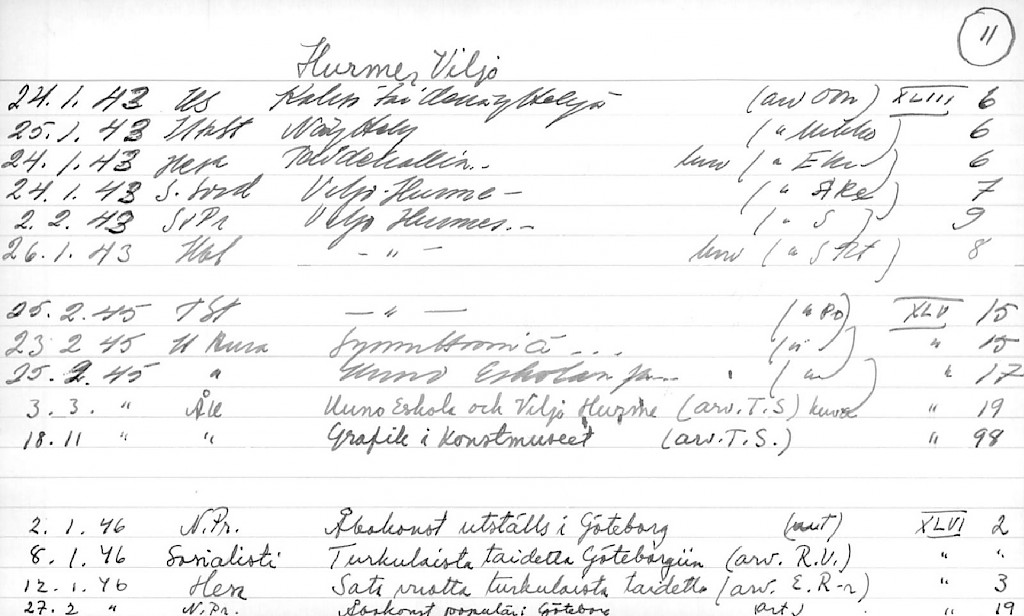 11
Hurme, Viljo
24.1.43 US Kaksi taidenäyttelyä (arv OOn) XLIII 6
25.1.43 Näyttely (" Ukko) 6
24.1.43 Hesa Taidehallin.. kuv (" EKr) 6
24.1.43 S. Sosd Viljo Hurme — (" Åke) 7
2.2.43 SvPr Viljo Hurmes.. (" S) 9
26.1.43 Hbl — " — kuv (" S) 8
25.2.45 TSt — " — (" Po) XLV 15
23 2 45 U Aura ... (" ") " 15
25.2.45 " Uuno Eskolan ja... (" ") " 17
3.3. " ÅU Uuno Eskola och Viljo Hurme (arv. T.S) kuva " 19
18.11 " " Grafik i Konstmuseet (arv. T.S.) " 98
2.1.46 N.Pr. Åbokonst utställs i Göteborg (uut) XLVI 2
8.1.46 Sosialisti Turkulaista taidetta Göteborgiin (arv. R.V.) " "
12.1.46 Hesa Sata vuotta turkulaista taidetta (arv. E.R-r) " 3
27.2 " N.Pr. Åbokonst populär i Göteborg " 19